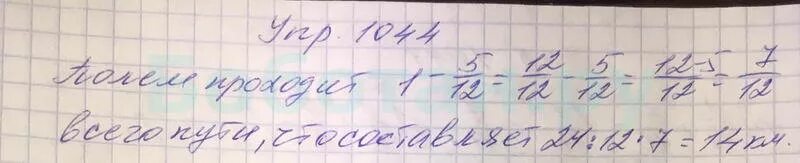 Упр. 1044
Полем проходит 1 - 5/12 = 12/12 - 5/12 = 12-5/12 = 7/12
всего пути, что составляет 24:12·7=14 км.